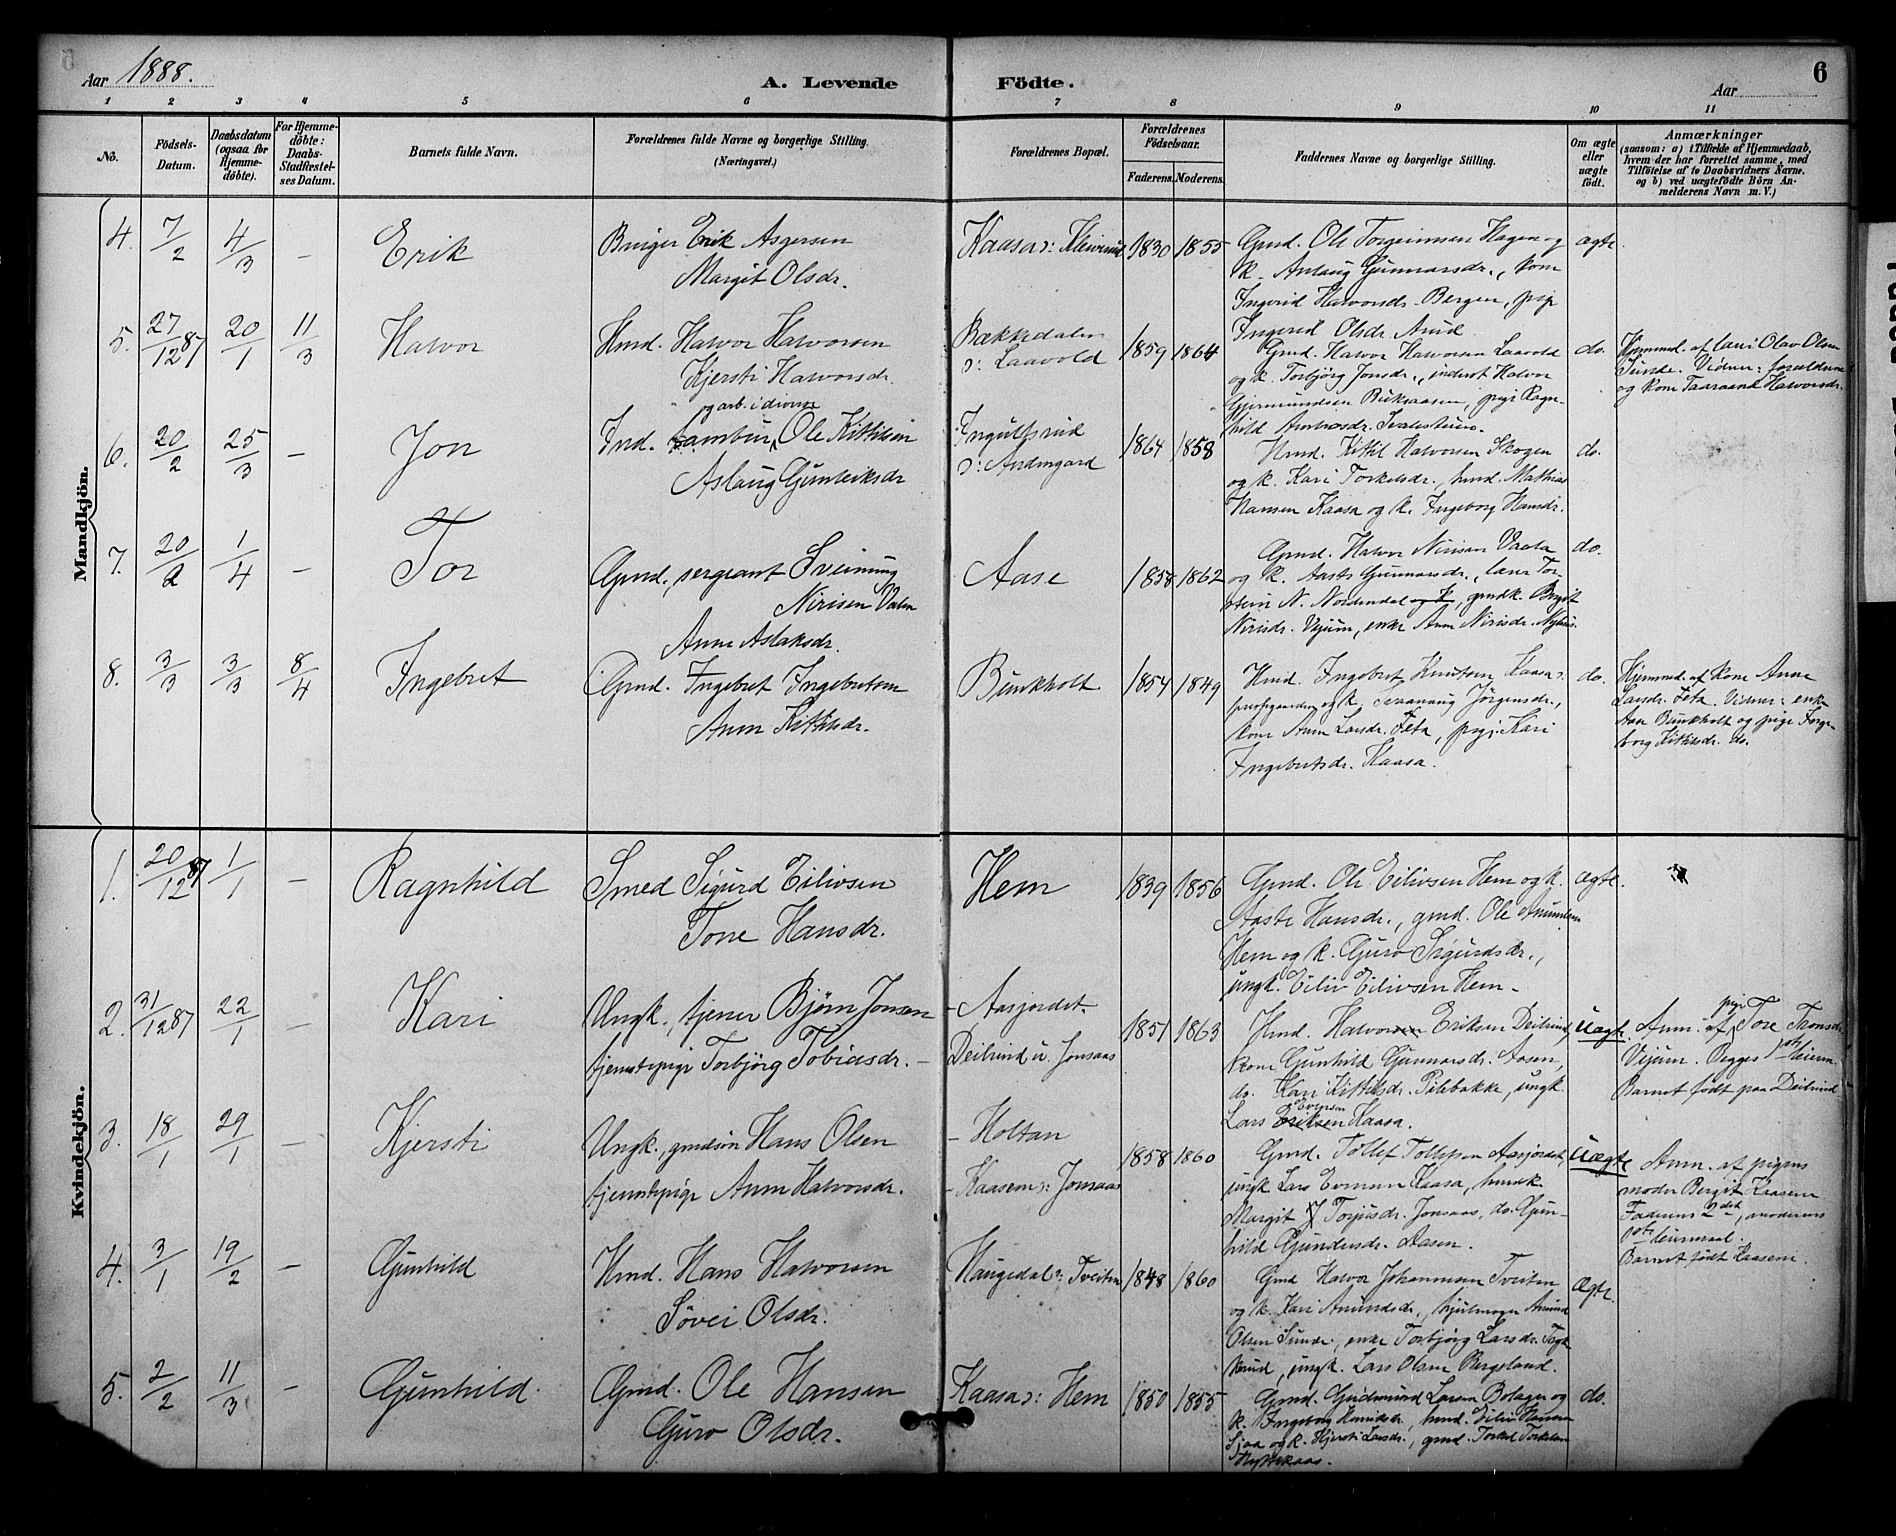 Aar 1888.
A. Levende Födte.
Aar
6
1 2 3 4 5 6 7 8 9 10 11
No.
Födsels-
Datum.
Daabsdatum
(ogsaa for
Hjemme-
döbte).
For Hjemme-
döbte:
Daabs-
Stadfæstel-
ses Datum.
Barnets fulde Navn.
Forældrenes fulde Navne og borgerlige Stilling.
(Næringsvei.)
Forældrenes Bopæl.
Forældrenes
Födselsaar.
Faderens.
Moderens.
Faddernes Navne og borgerlige Stilling.
Om ægte
eller
uægte
födt.
Anmærkninger
(saasom: a) i Tilfælde af Hjemmedaab,
hvem der har forrettet samme, med
Tilföielse af to Daabsvidners Navne,
og b) ved uægtefödte Börn An-
melderens Navn m. V.)
Mandkjön.
4. 7/2 4/3 – Erik
Erik Asgersen
Margit Olsdr.
Kaasa ɔ: 1830 1855
Gmd. Ole Torgrimsen Hagen og
k. Aslaug Gunnarsdr., kone
Ingerid Halvorsdr. Bergen, pige
Ingerid Olsdr. Arud.
ægte.
5. 27/12 87 20/1 11/3 Halvor
Hmd. Halvor Halvorsen
Kjersti Halvorsdr.
Bækkedalen
ɔ: Laavold
1859 1864
Gmd. Halvor Halvorsen Laavold
og k. Torbjörg Jonsdr., inderst Halvor
Gjermundsen Buksaasen, pige Ragn-
hild
do.
Hjemmed. af lærer Olav Olsen
Sunde. Vidner: forældrene
og kone Taaraand Halvorsdr.
6. 20/2 25/3 – Jon
og arb. i diverse
Ind. tambur, Ole Kittilsen
Aslaug Gunleiksdr
Ingulfsrud
ɔ: Andersgard
1864 1858
Hmd. Kittil Halvorsen Skogen
og k. Kari Torkelsdr., hmd. Mathias
Hansen Kaasa og k. Ingeborg Hansdr.
do.
7. 20/2 1/4 – Tor
Gmd., sergeant Sveinung
Nirisen Vala
Anne Aslaksdr.
Aase
1858 1862
Gmd. Halvor Nirisen Vaala
og k. Aaste Gunnarsdr., lærer Tor-
stein N. Nordendal og k, gmdk. Birgit
Nirisdr. Vejum, enke Anne Nirisdr.
do.
8. 3/3 3/3 8/4 Ingebret
Gmd. Ingebret Ingebretsen
Anne Kittilsdr.
Bunkholt
1854 1849
Hmd. Ingebret Knutsen Kaasa ɔ:
og k. Jörgensdr.,
kone Anne Larsdr. Feta, pige Kari
Ingebretsdr. Kaasa.
do.
Hjemmed. af kone Anne
Larsdr. Feta. Vidner: enke
Aase Bunkholt og pige Inge-
borg Kittilsdr. do.
Kvindekjön.
1. 20/12 87 1/1 – Ragnhild
Smed Sigurd Eilivsen
Tone Hansdr.
Hem
1839 1856
Gmd. Ole Eilivsen Hem og k.
Aaste Hansdr., gmd. Ole Anundsen
Hem og k. Guro Sigurdsdr.,
ungk. Eiliv Eilivsen Hem.
ægte.
2. 31/12 87 22/1 – Kari
Ungk., tjener Björn Jonsen
tjenestepige Torbjörg Tobiasdr. –
– Aasjordet.
Deilrind u. Jonsaas
1851 1863
Hmd. Halvorsen Eriksen Deilrind,
kone Gunhild Gunnarsdr. Aasen,
do. Kari Kittilsdr. Pilebakke, ungk.
Evensen
Lars Eriksen Kaasa.
Uægte.
pige
Anm. af Tore Tronsdr.
Vejum. Begges 1ste leierm.
Barnet født paa Deilrind
3. 18/1 29/1 – Kjersti
Ungk., gmdsön Hans Olsen
tjenestepige Anne Halvorsdr.
– Holtan
– Kaasene ɔ: Jonsaas
1858 1860
Gmd. Tollef Tollefsen Aasjordet,
ungk. Lars Evensen Kaasa, hmdk.
Margit Torjusdr. Jonsaas, do. Gun-
hild Gundersdr. Aasen.
Uægte
Anm. af pigens
moder Bergit Kaasene
Faderens 2det, moderens
1ste leiermaal.
Barnet født Kaasene
4. 3/1 19/2 – Gunhild
Hmd. Hans Halvorsen
Sövei Olsdr.
Haugedal ɔ: Tveiten
1848 1860
Gmd Halvor Johannesen Tveiten
og k. Kari Anundsdr., hjulmager Anund
Olsen Sunde, enke Torbjörg Larsdr.
ungk. Lars Olsen Bergeland.
Ægte.
5. 2/2 11/3 – Gunhild.
Gmd. Ole Hansen
Guro Olsdr.
Kaasa ɔ: Hem
1850 1855
Gmd. Gudmund Larsen Bolager og
k. Ingeborg hmd. Eiliv Hansen
og k. Kjersti Larsdr., gmd. Torkel Torkelsen
do.